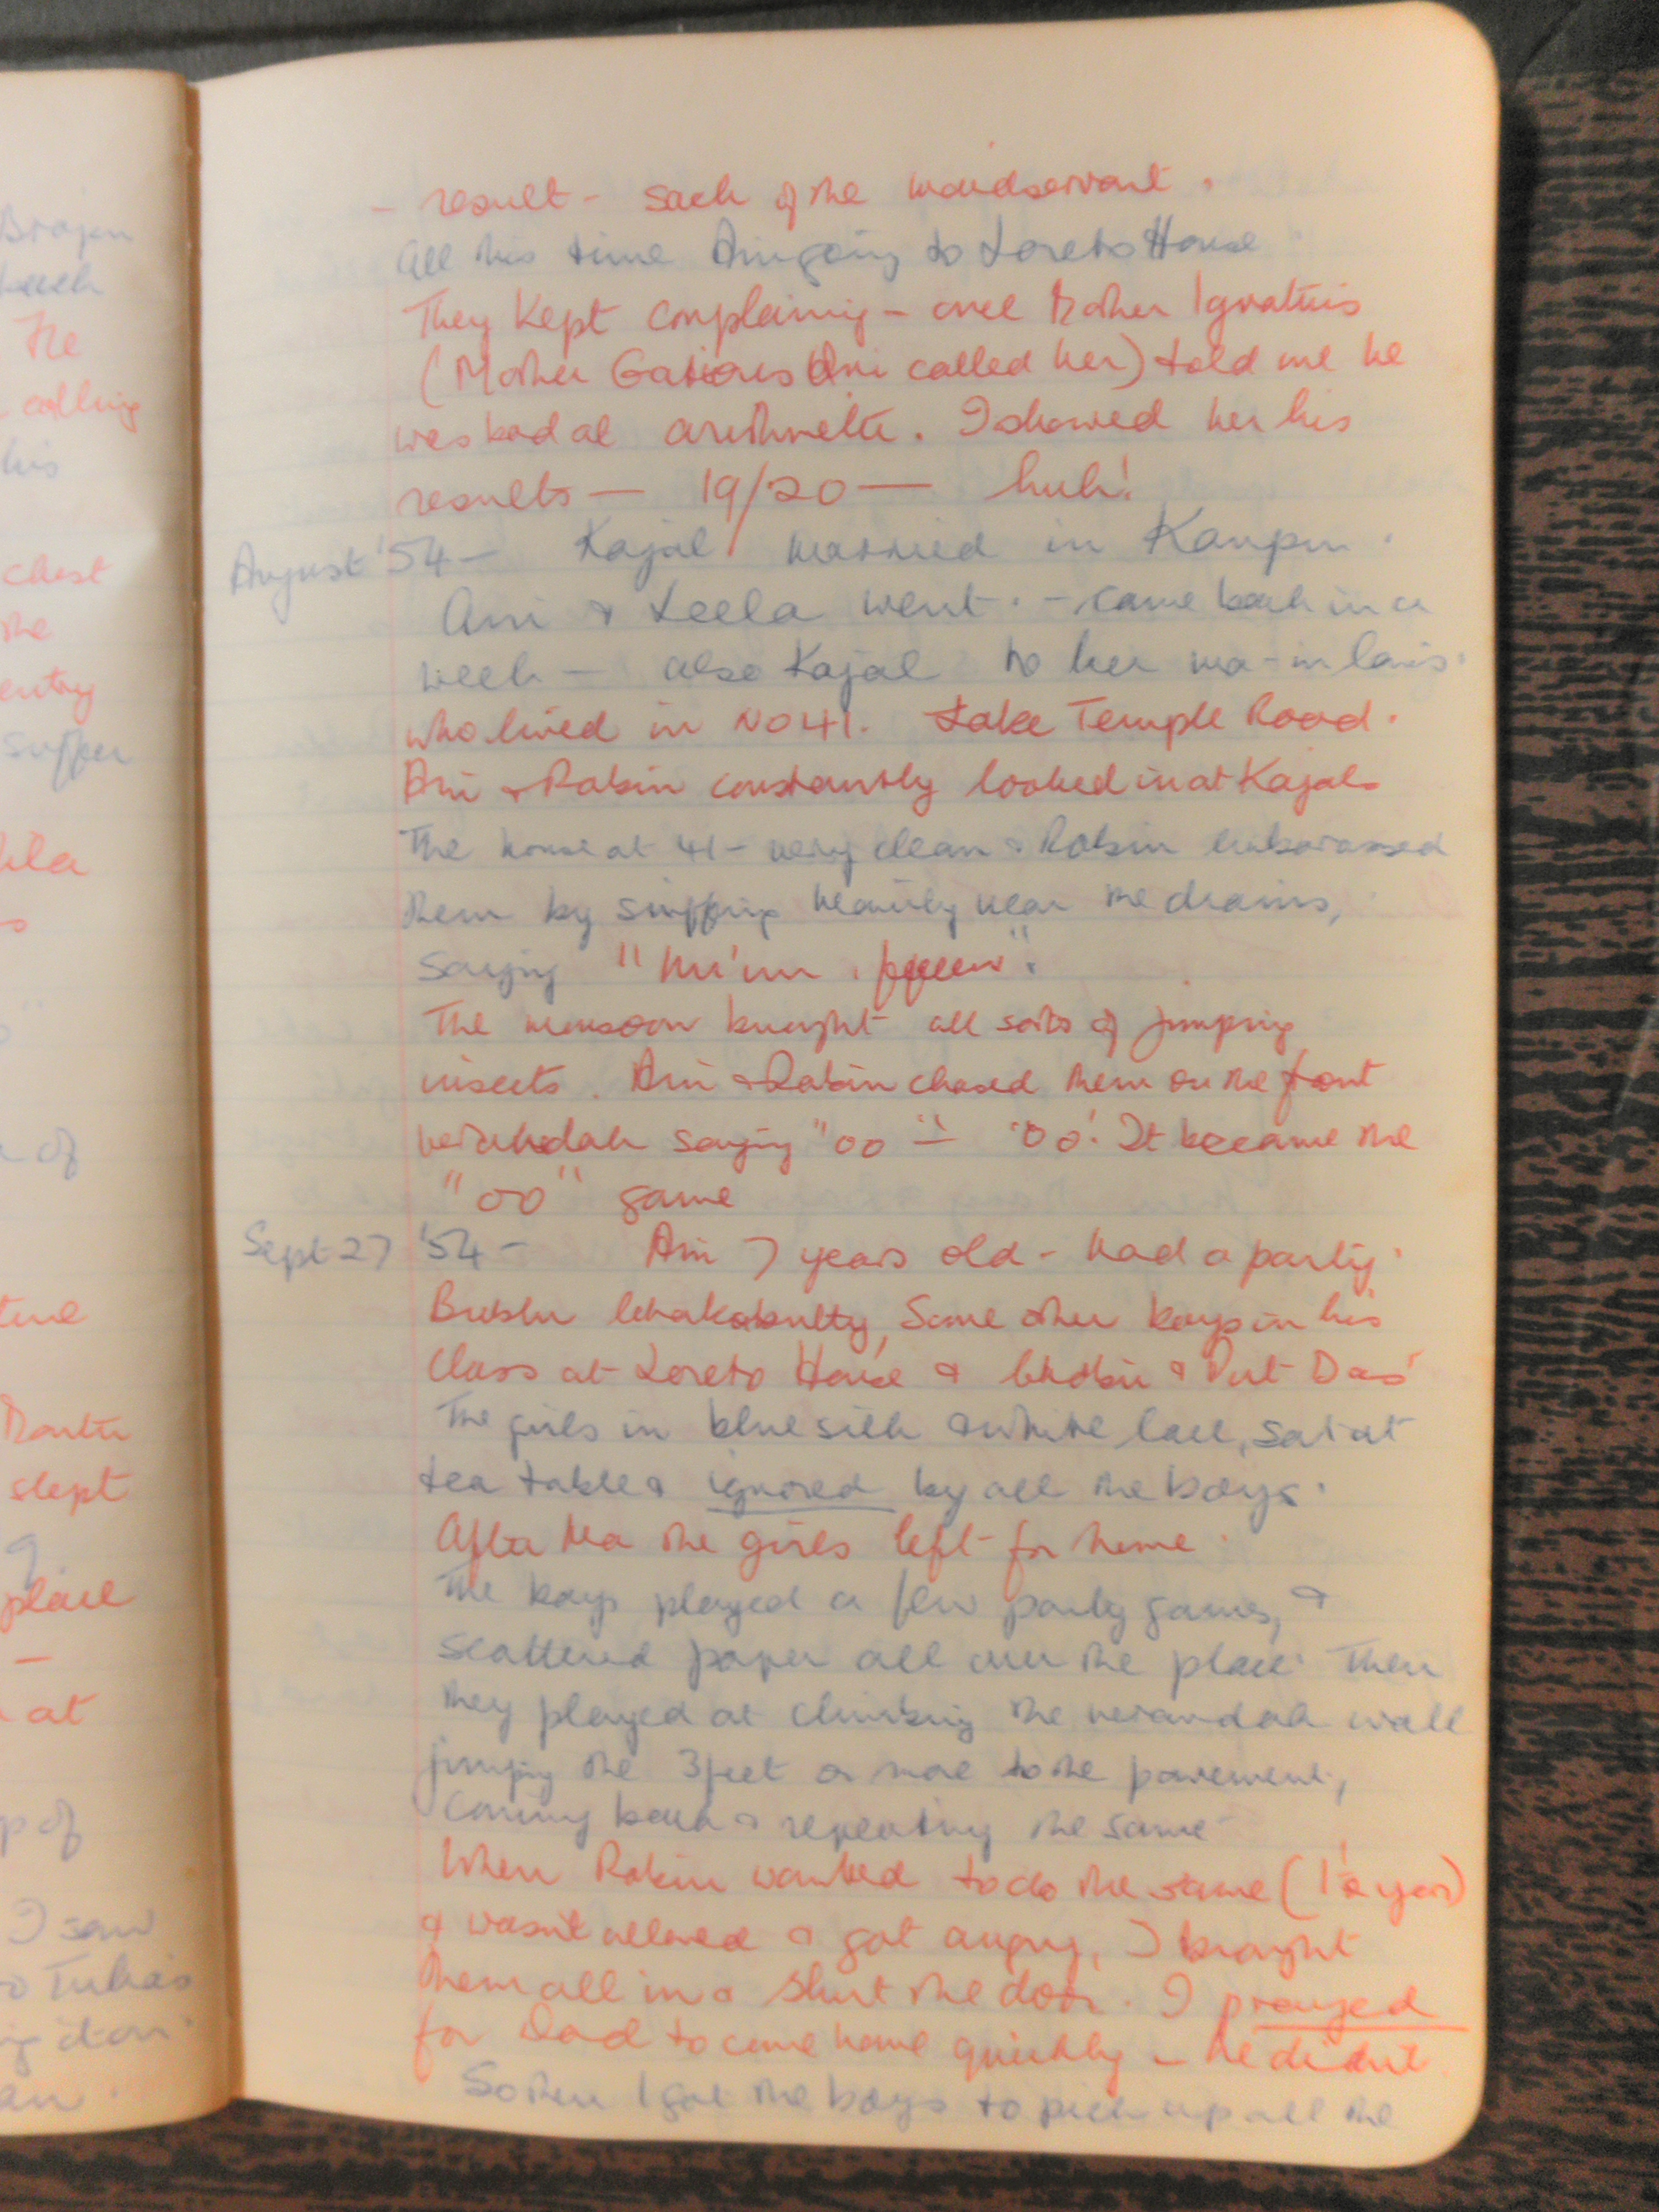 - result - sack of the maidservant.
All this time Ani going to Loreto House
They kept complaining - once Mother Ignatius
(Mother Gatious Ani called her) told me he
was bad at arithmetic. I showed her his
results — 19/20 — huh!
August '54 - Kajal married in Kanpur.
Ani & Leela went. - came back in a
week - also Kajal to her ma-in-laws.
who lived in No 41. Lake Temple Road.
Ani & Robin constantly looked in at Kajals
The house at 41 - very clean & Robin embarassed
them by sniffing heavily near the drains,
saying "Mm'mm.
The monsoon brought all sorts of jumping
insects. Ani & Robin chased them on the front
verandah saying "oo" - "oo". It became the
"oo" game
Sept 27 '54 - Ani 7 years old - had a party.
Bublu Chakabutty, Some other boys in his
class at Loreto House & & Das'
The girls in blue silk & white lace, sat at
tea table & ignored by all the boys.
After tea the girls left for home.
The boys played a few party games, &
scattered paper all over the place. Then
they played at climbing the verandah wall
jumping the 3 feet or more to the pavement,
coming back & repeating the same
When Robin wanted to do the same (1½ years)
& wasn't allowed & got angry, I brought
them all in & shut the door. I prayed
for Dad to come home quickly - he didnt.
So then I got the boys to pick up all the
Brojen
teeth
The
calling
his
chest
the
entry
supper
of
time
slept
place
-
at
p of
I saw
Tulia's